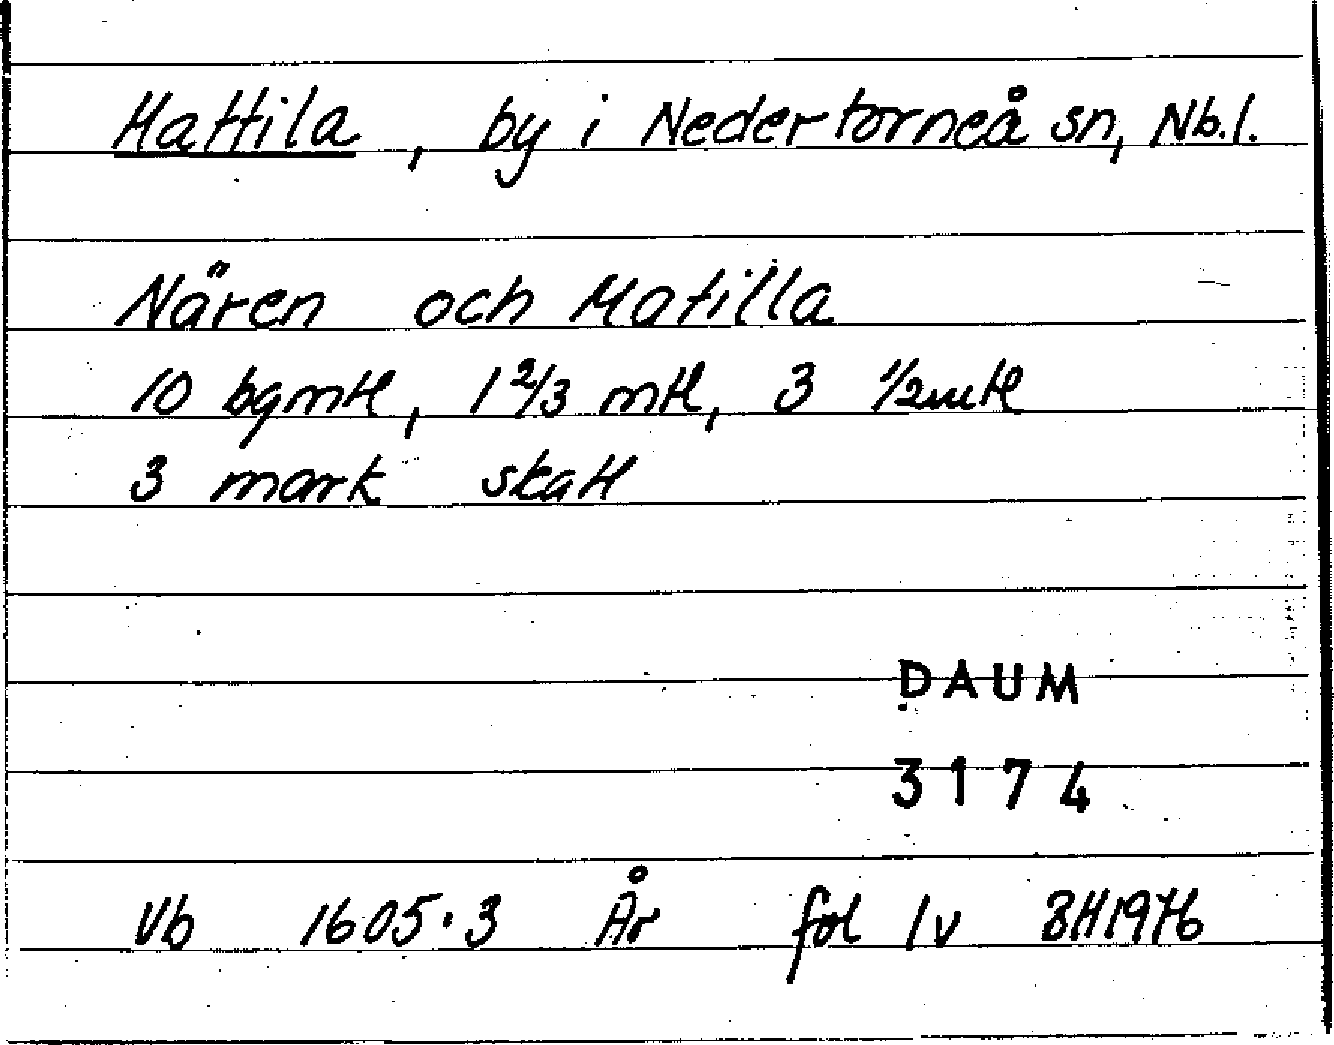 Mattila, by i Nedertorneå sn, Nb.l.
Nären och Matilla
10 bgmtl, 1 2/3 mtl, 3 1/2mtl
3 mark skatt
DAUM
3174
Vb 1605.3 År fol 1v BH1976